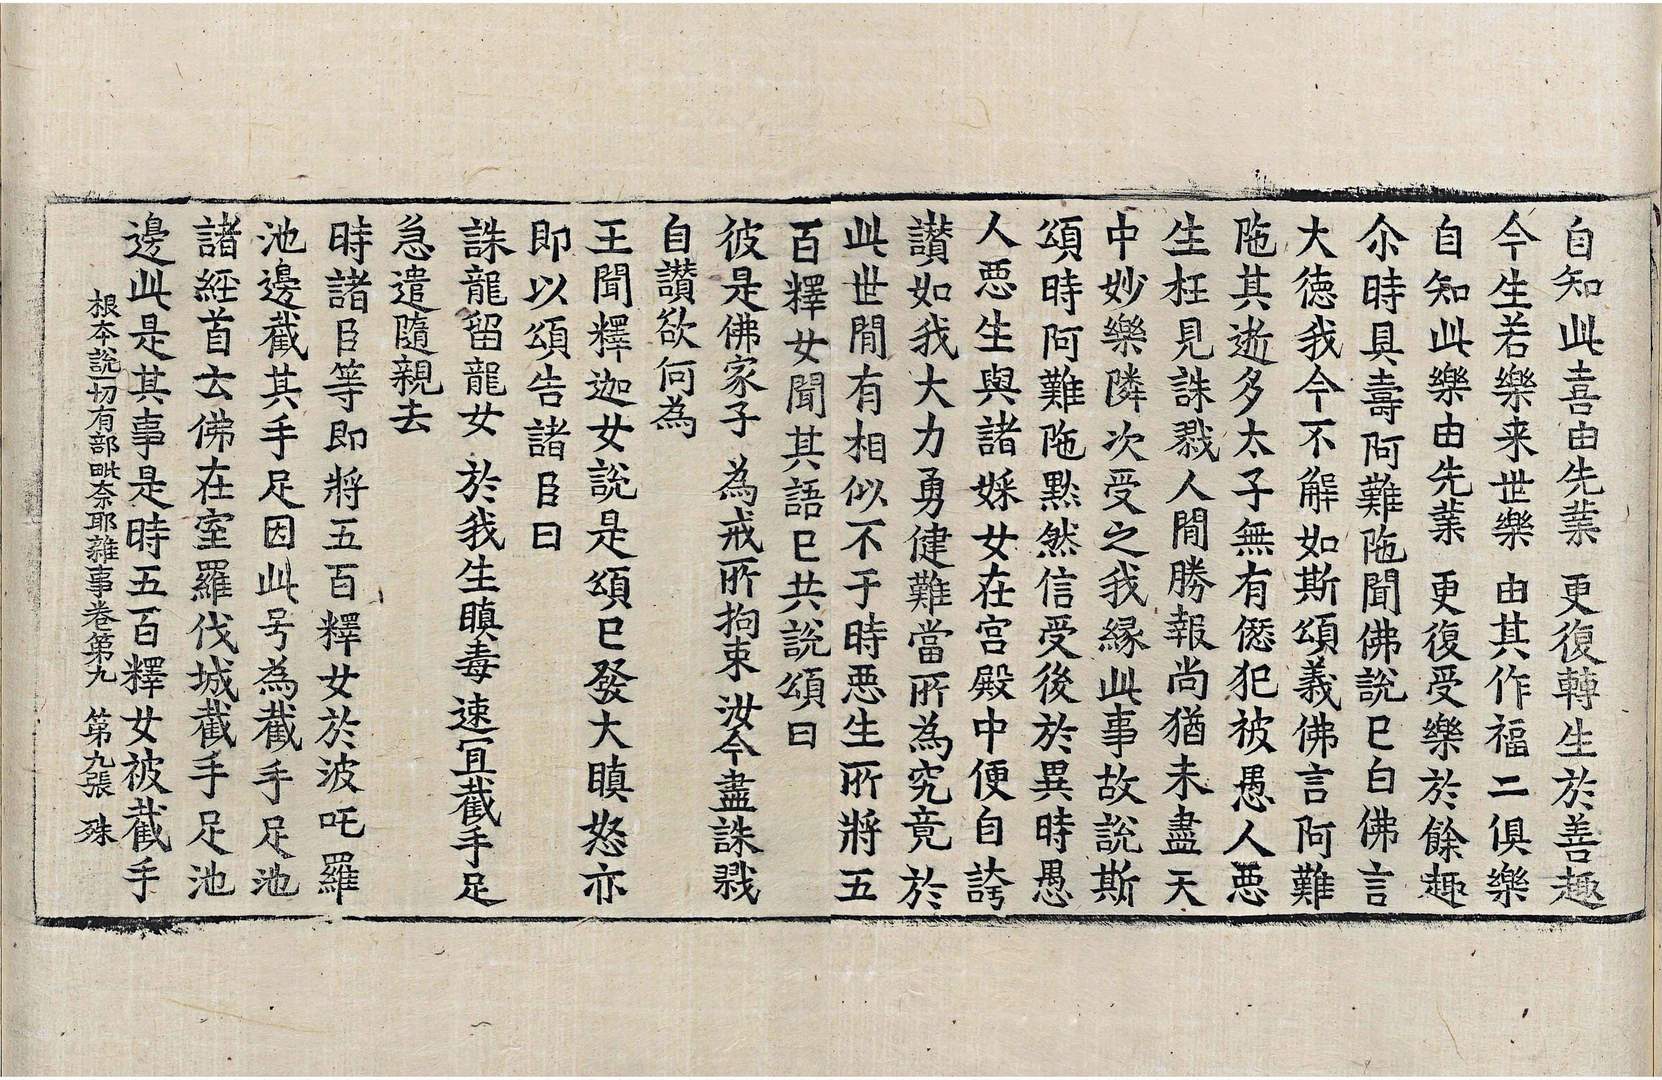 自知此喜由先業　更復轉生於善趣
今生若樂来世樂　由其作福二俱樂
自知此樂由先業　更復受樂於餘趣
尒時具壽阿難陁聞佛說巳白佛言
大徳我今不解如斯頌義佛言阿難
陁其逝多太子無有𠎝犯被愚人悪
生枉見誅戮人閒勝報尚猶未盡天
中妙樂隣次受之我緣此事故說斯
頌時阿難陁黙然信受後於異時愚
人悪生與諸婇女在宫殿中便自誇
讃如我大力勇健難當所為究竟於
此世閒有相似不于時悪生所將五
百釋女聞其語巳共說頌曰
彼是佛家子　為戒所拘束　汝今盡誅戮
自讃欲何為
王聞釋迦女說是頌巳發大瞋怒亦
即以頌告諸臣曰
誅龍留龍女　於我生瞋毒　速冝截手足
急遣隨親去
時諸臣等即將五百釋女於波吒羅
池邊截其手足因此号為截手足池
諸經首云佛在室羅伐城截手足池
邊此是其事是時五百釋女被截手
根本說一切有部毗奈耶雜事卷第九　第九張　殊